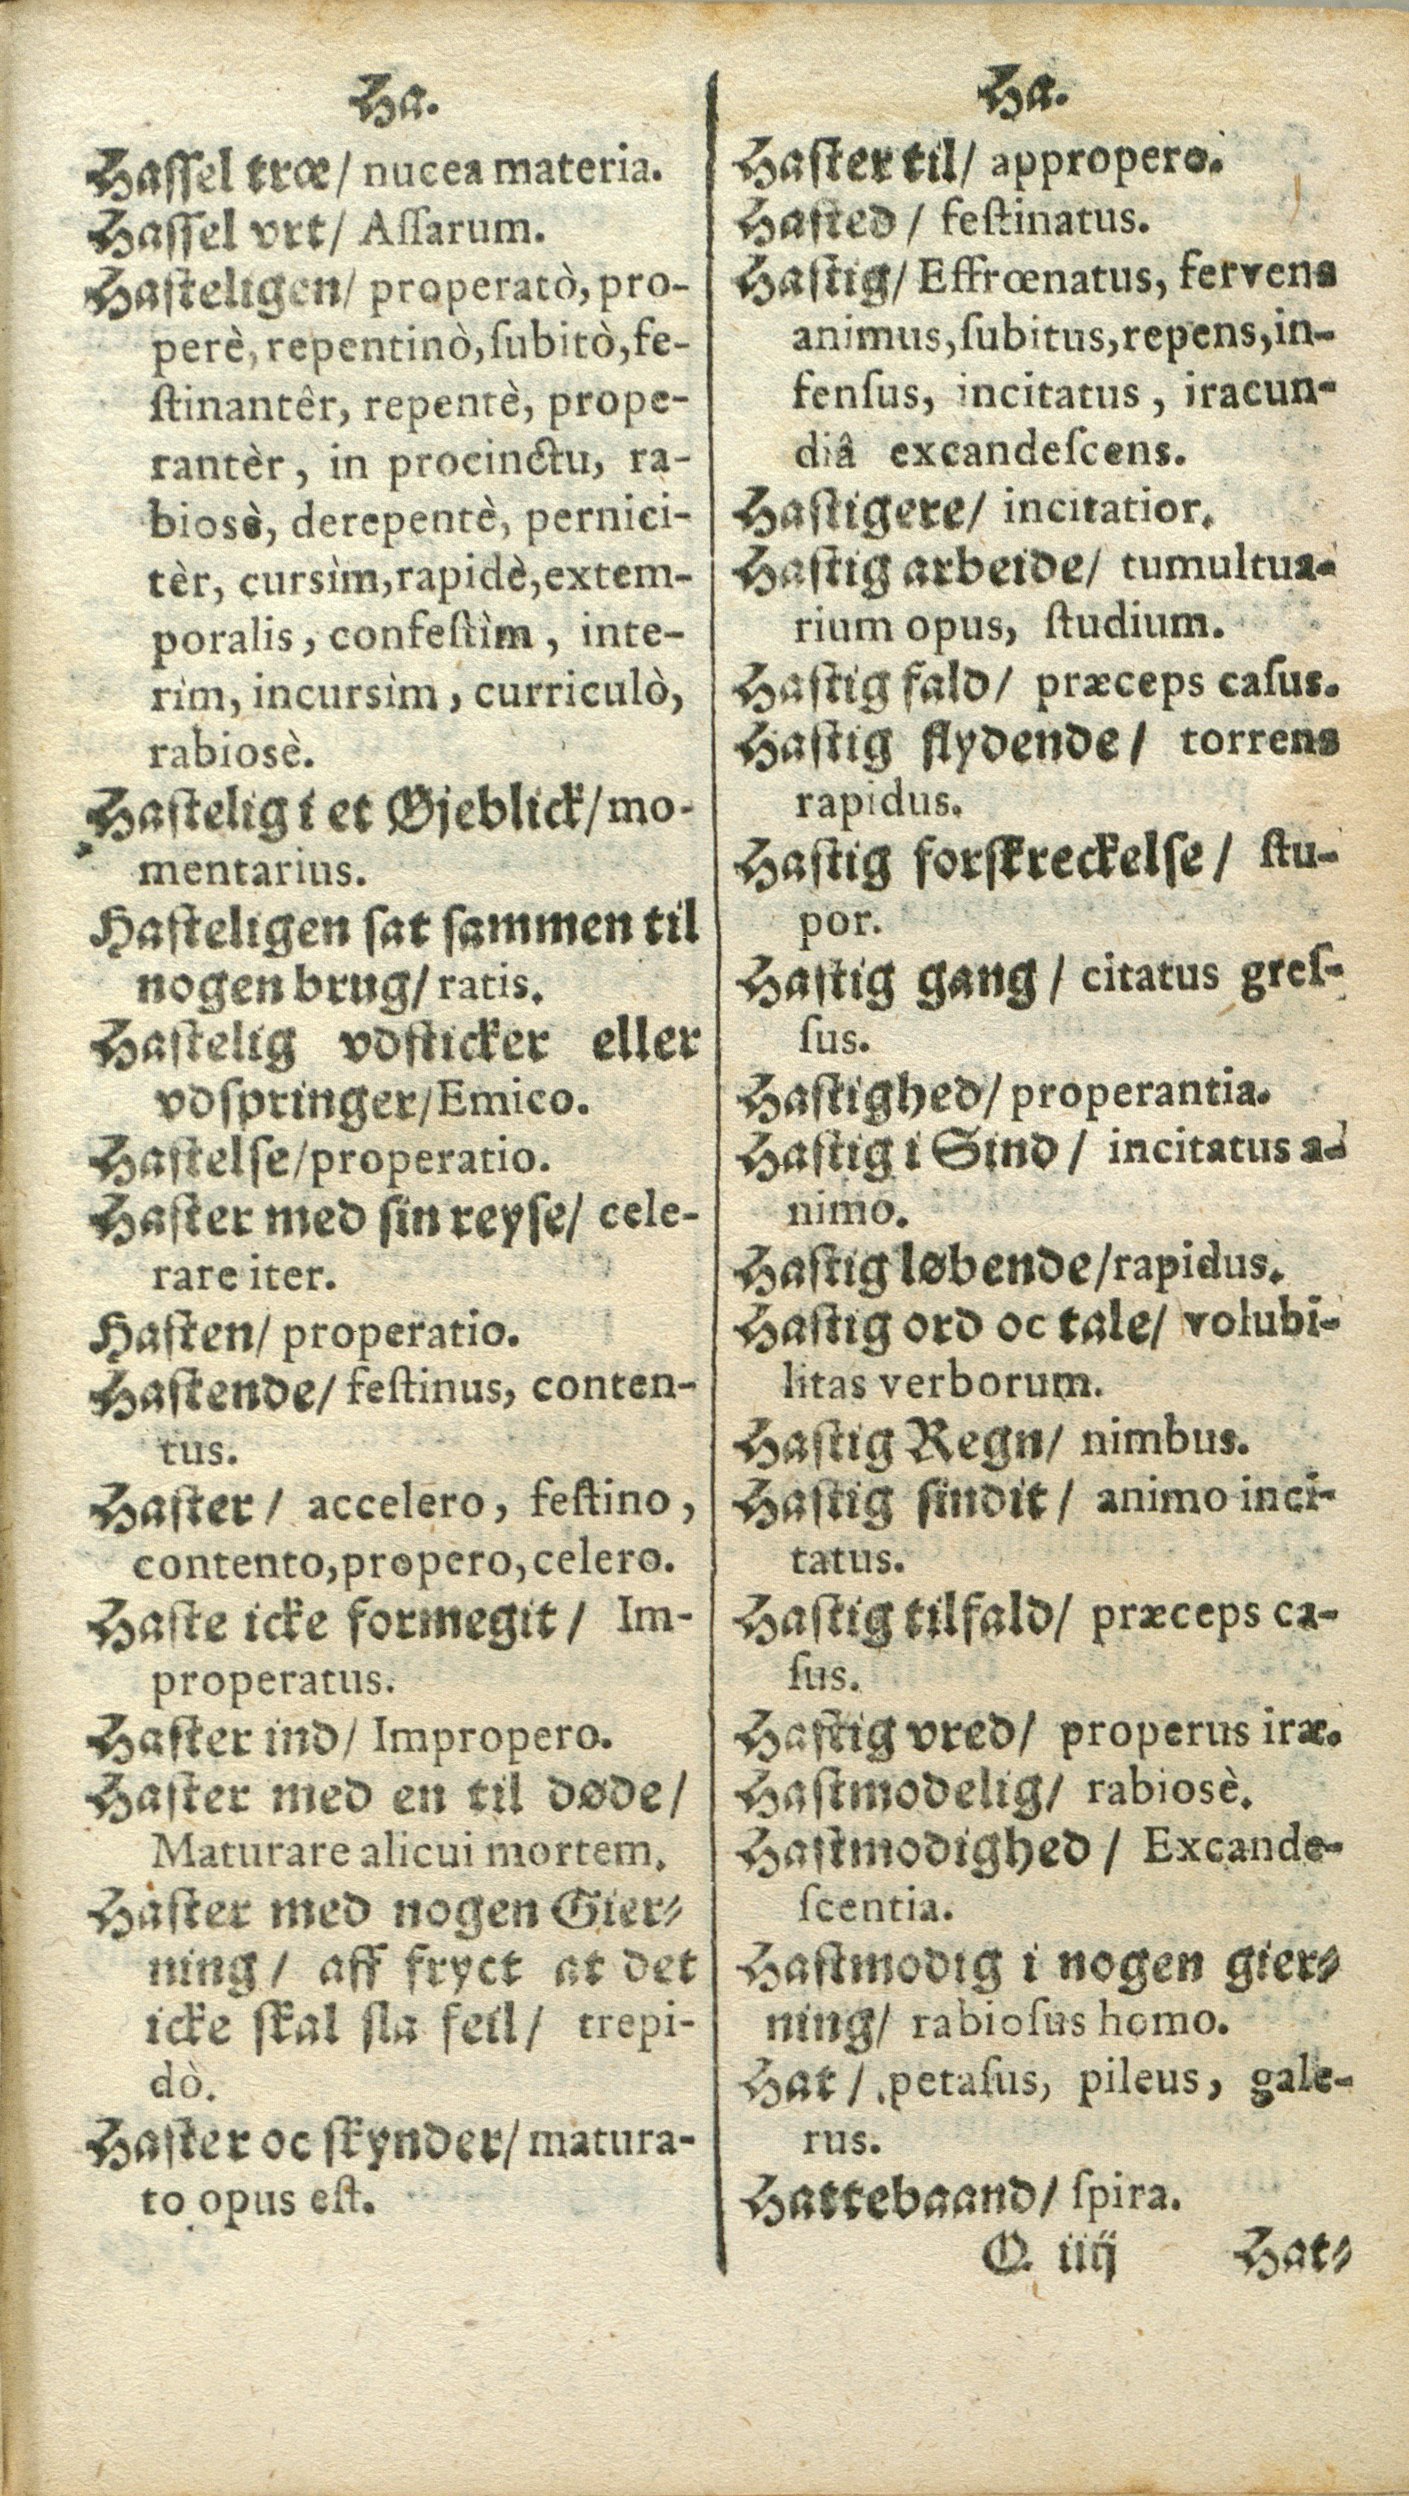 Ha.
Haſſel træ/ nucea materia.
Haſſel vrt/ Aſſarum.
Haſteligen/ properatò, pro-
perè, repentinò, ſubitò, fe-
ſtinantêr, repentè, prope-
rantèr, in procinctu, ra-
biosè, derepentè, pernici-
tèr, cursìm, rapidè, extem-
poralis, confeſtìm, inte-
rìm, incursìm, curriculò,
rabiosè.
Haſtelig i et Øjeblick/ mo-
mentarius.
Haſteligen ſat ſammen til
nogen brug/ ratis.
Haſtelig vdſticker eller
vdſpringer/ Emico.
Haſtelſe/ properatio.
Haſter med ſin reyſe/ cele-
rare iter.
Haſten/ properatio.
Haſtende/ feſtinus, conten-
tus.
Haſter/ accelero, feſtino,
contento, propero, celero.
Haſte icke formegit/ Im-
properatus.
Haſter ind/ Impropero.
Haſter med en til døde/
Maturare alicui mortem.
Haſter med nogen Gier⸗
ning/ aff fryct at det
icke ſkal ſla feil/ trepi-
dò.
Haſter oc ſkynder/ matura-
to opus eſt.
Ha.
Haſter til/ appropero.
Haſted/ feſtinatus.
Haſtig/ Effrœnatus, fervens
animus, ſubitus, repens, in-
fenſus, incitatus, iracun-
diâ excandeſcens.
Haſtigere/ incitatior.
Haſtig arbeide/ tumultua-
rium opus, ſtudium.
Haſtig fald/ præceps caſus.
Haſtig flydende/ torrens
rapidus.
Haſtig forſkreckelſe/ ſtu-
por.
Haſtig gang/ citatus greſ-
ſus.
Haſtighed/ properantia.
Haſtig i Sind/ incitatus a-
nimo.
Haſtig løbende/ rapidus.
Haſtig ord oc tale/ volubi-
litas verborum.
Haſtig Regn/ nimbus.
Haſtig ſindit/ animo inci-
tatus.
Haſtig tilfald/ præceps ca-
ſus.
Haſtig vred/ properus iræ.
Haſtmodelig/ rabiosè.
Haſtmodighed/ Excande-
ſcentia.
Haſtmodig i nogen gier⸗
ning/ rabioſus homo.
Hat/ petaſus, pileus, gale-
rus.
Hattebaand/ ſpira.
Q iiij Hat⸗